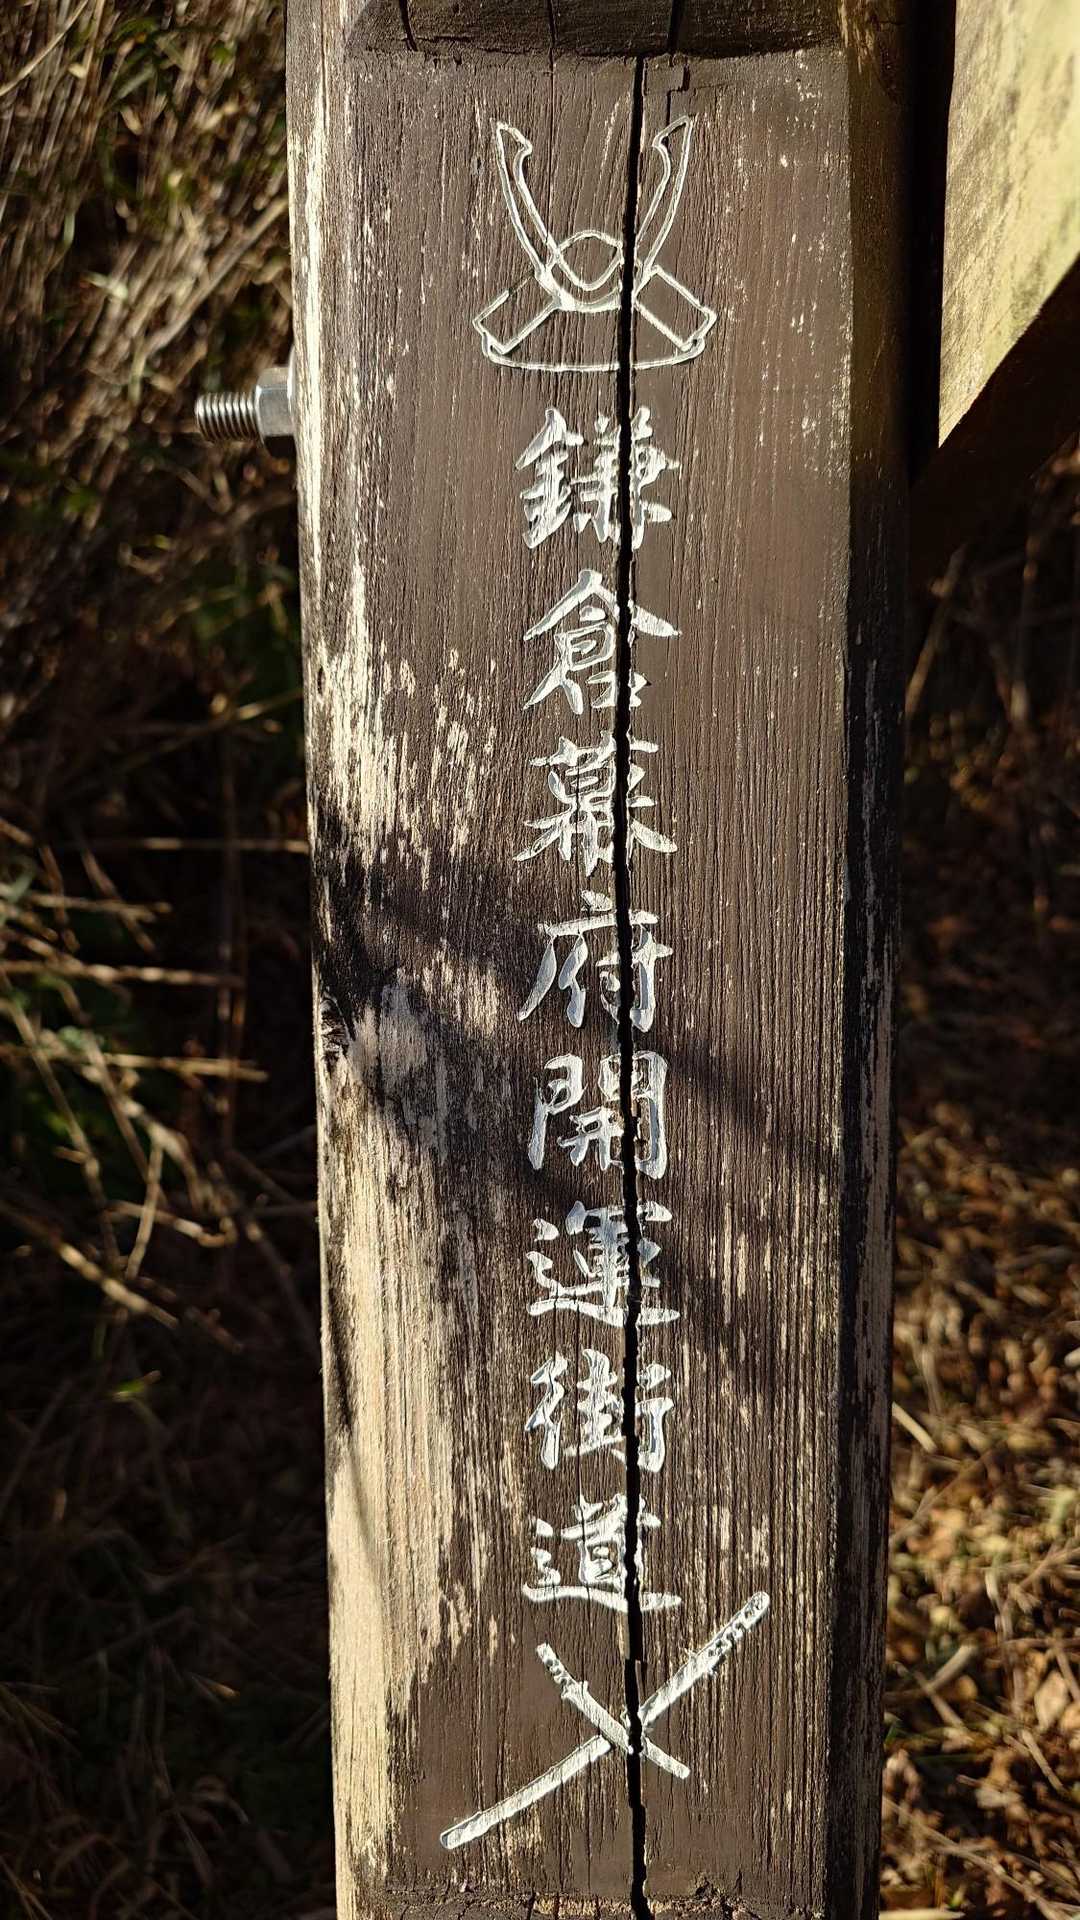 鎌倉幕府開運街道